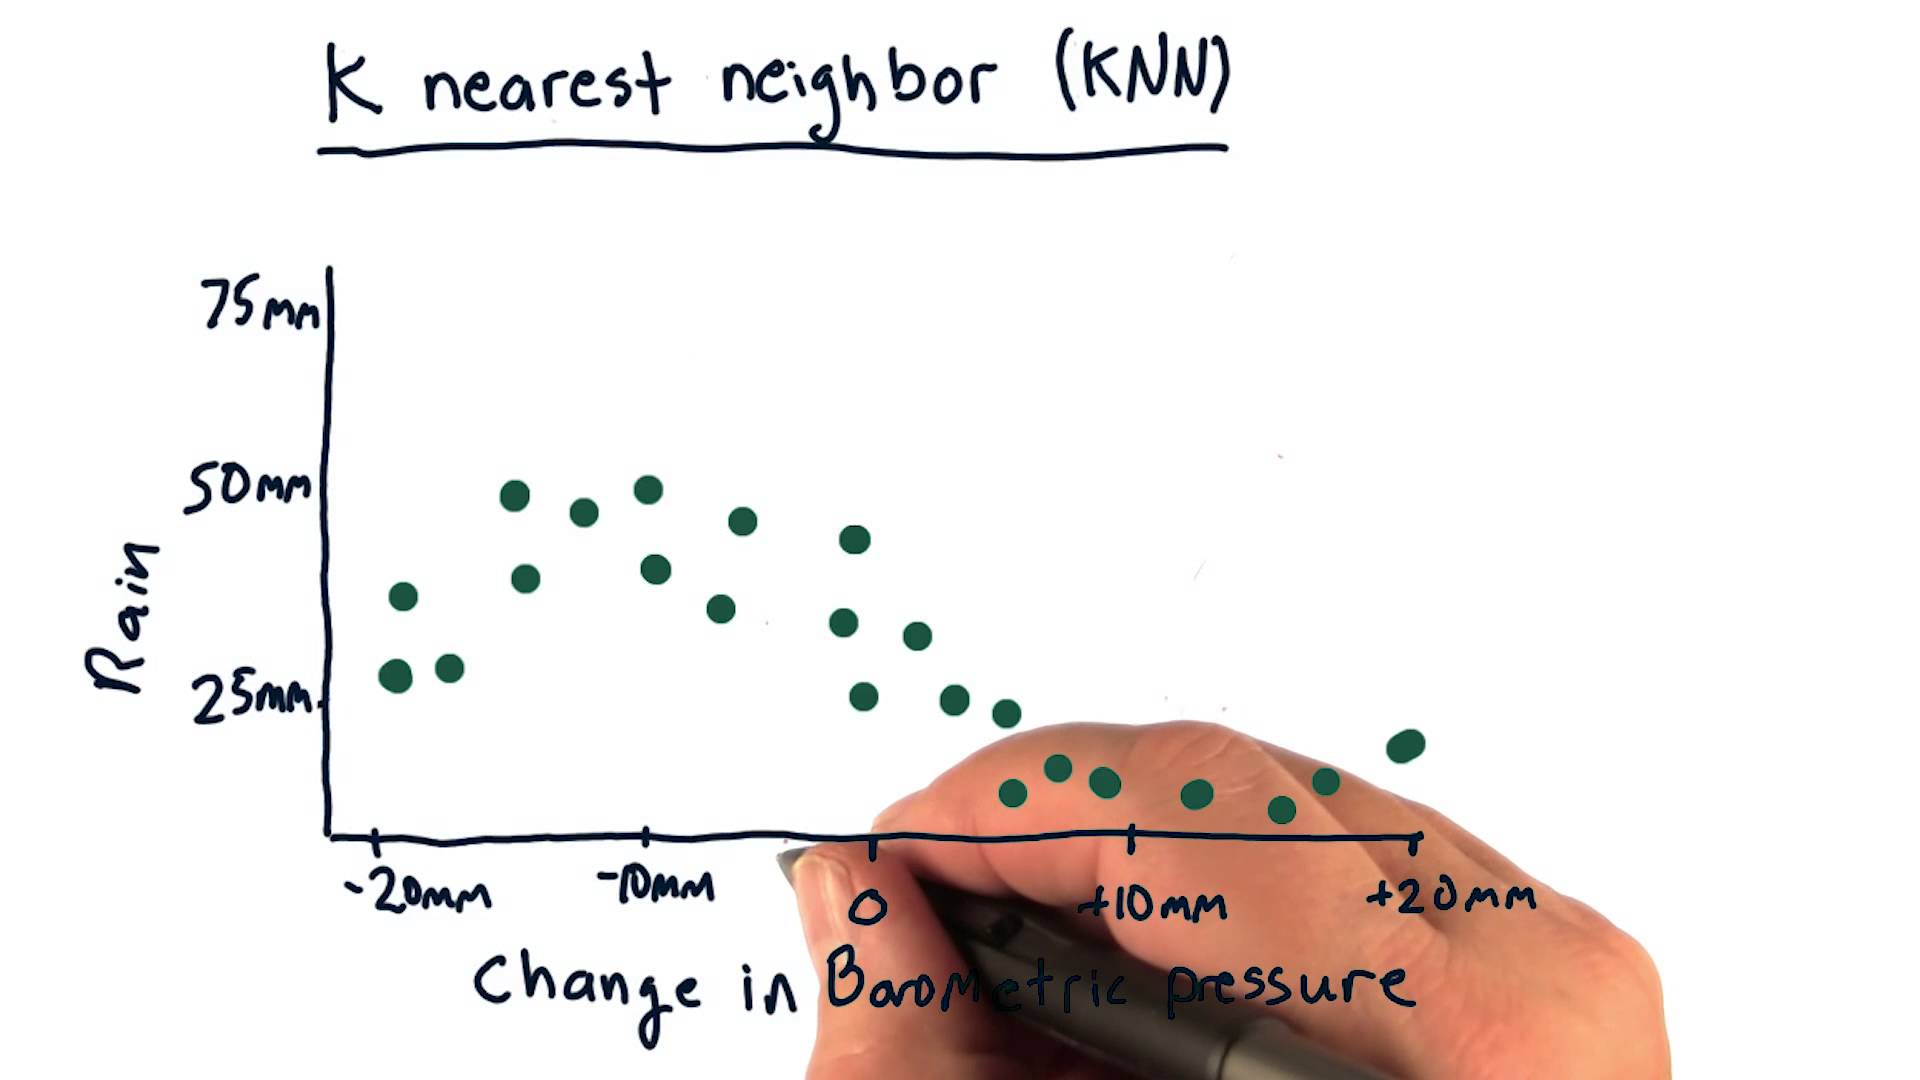 K nearest neighbor (KNN)
75mm
50mm
25mm
Rain
-20mm -10mm 0 +10mm +20mm
Change in Barometric pressure